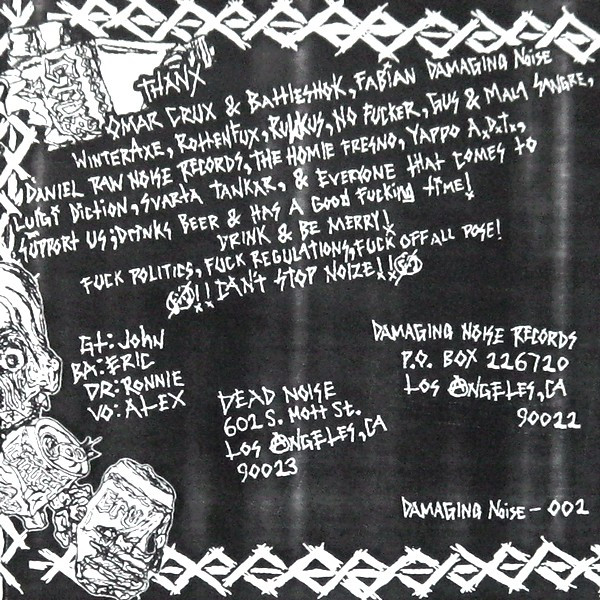 THANX
OMAR CRUX & BATTLESHOK, FABIAN DAMAGING NOISE
WINTERAXE, ROTTENFUX, RUKKUS, NO FUCKER, GUS & MALA SANGRE,
DANIEL RAW NOISE RECORDS, THE HOMIE FRESNO, YAPPO A.D.T.,
LUIGI DICTION, SVARTA TANKAR, & EVERYONE THAT COMES TO
SUPPORT US; DRINKS BEER & HAS A GOOD FUCKING TIME!
DRINK & BE MERRY!
FUCK POLITICS, FUCK REGULATIONS, FUCK OFF ALL POSE!
!! CAN'T STOP NOIZE!!
GT: JOHN
BA: ERIC
DR: RONNIE
VO: ALEX
DEAD NOISE
602 S. MOTT ST.
LOS ANGELES, CA
90023
DAMAGING NOISE RECORDS
P.O. BOX 226720
LOS ANGELES, CA
90022
DAMAGING NOISE - 002